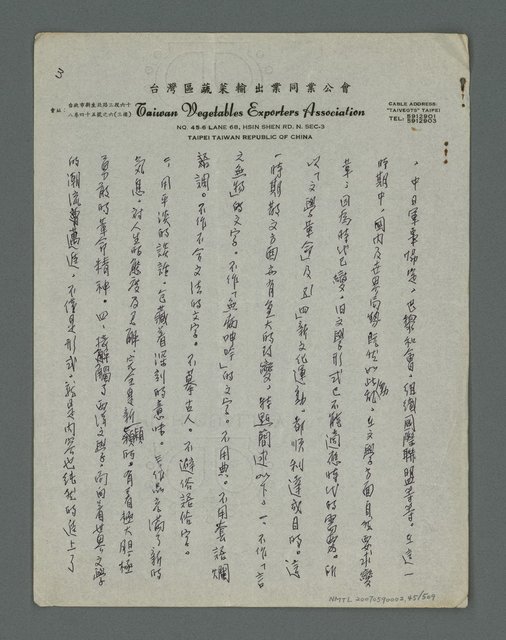 3
台灣區蔬菜輸出業同業公會
會址：台北市新生北路三段六十八巷四十五號之六(三樓)
Taiwan Vegetables Exporters Association
NO. 45-6 LANE 68, HSIN SHEN RD. N. SEC-3
TAIPEI TAIWAN REPUBLIC OF CHINA
CABLE ADDRESS:
"TAIVEGTS" TAIPEI
TEL: 5912901
5912903
、中日軍事協定、巴黎和會、組織國際聯盟等等。在這一
時期中，國內及世界局勢既然如此動，在文學方面自然要求變
革，因為時代已變，旧文學形式已不能適應時代的需要。所
以「文學革命」及「五四」新文化運動，都順利達成目的。這
一時期散文方面亦有重大的改變，特點簡述如下。一、不作「言
之無物」的文字。不作「無病呻吟」的文字。不用典。不用套語爛
調。不作不合文法的文字。不摹古人。不避俗話俗字。
二、用平淡的談話，包藏着深刻的意味。三、作品充滿了新的
氣息。对人生的態度及了解，完全是新穎的。有着極大胆極
勇敢的革命精神。四、接觸了西洋文學。向着世界文學
的潮流邁進。不僅是形式，就是內容也純然的追上了
NMTL 20070590002, 45/509